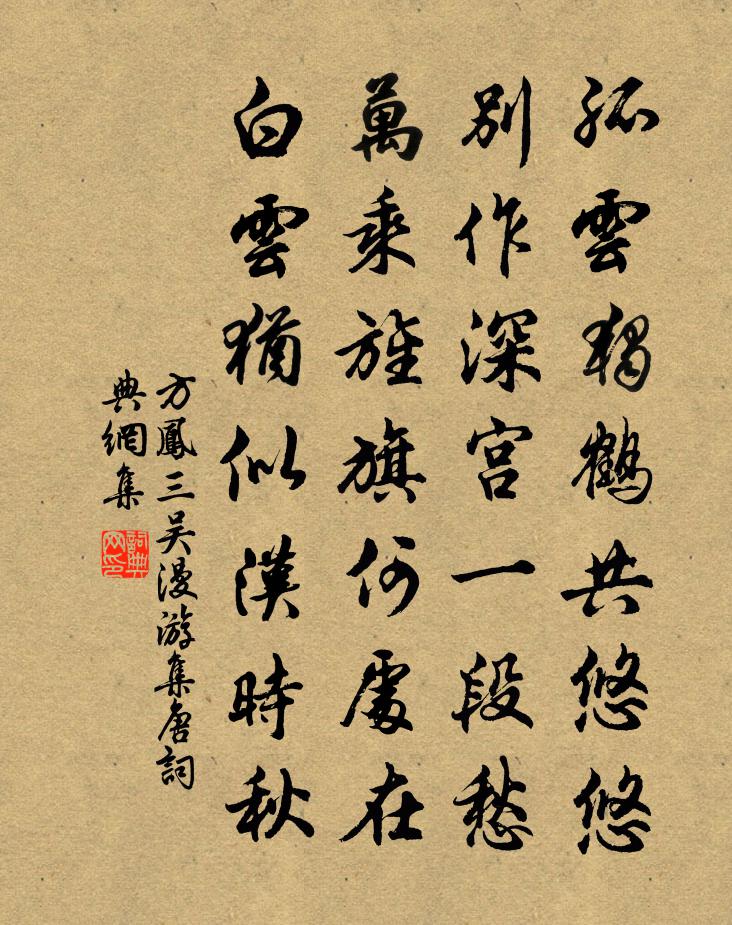 孤雲獨鶴共悠悠
別作深宮一段愁
萬乘旌旗何處在
白雲猶似漢時秋
方鳳三吳漫游集唐詞
典網集
詞典網印